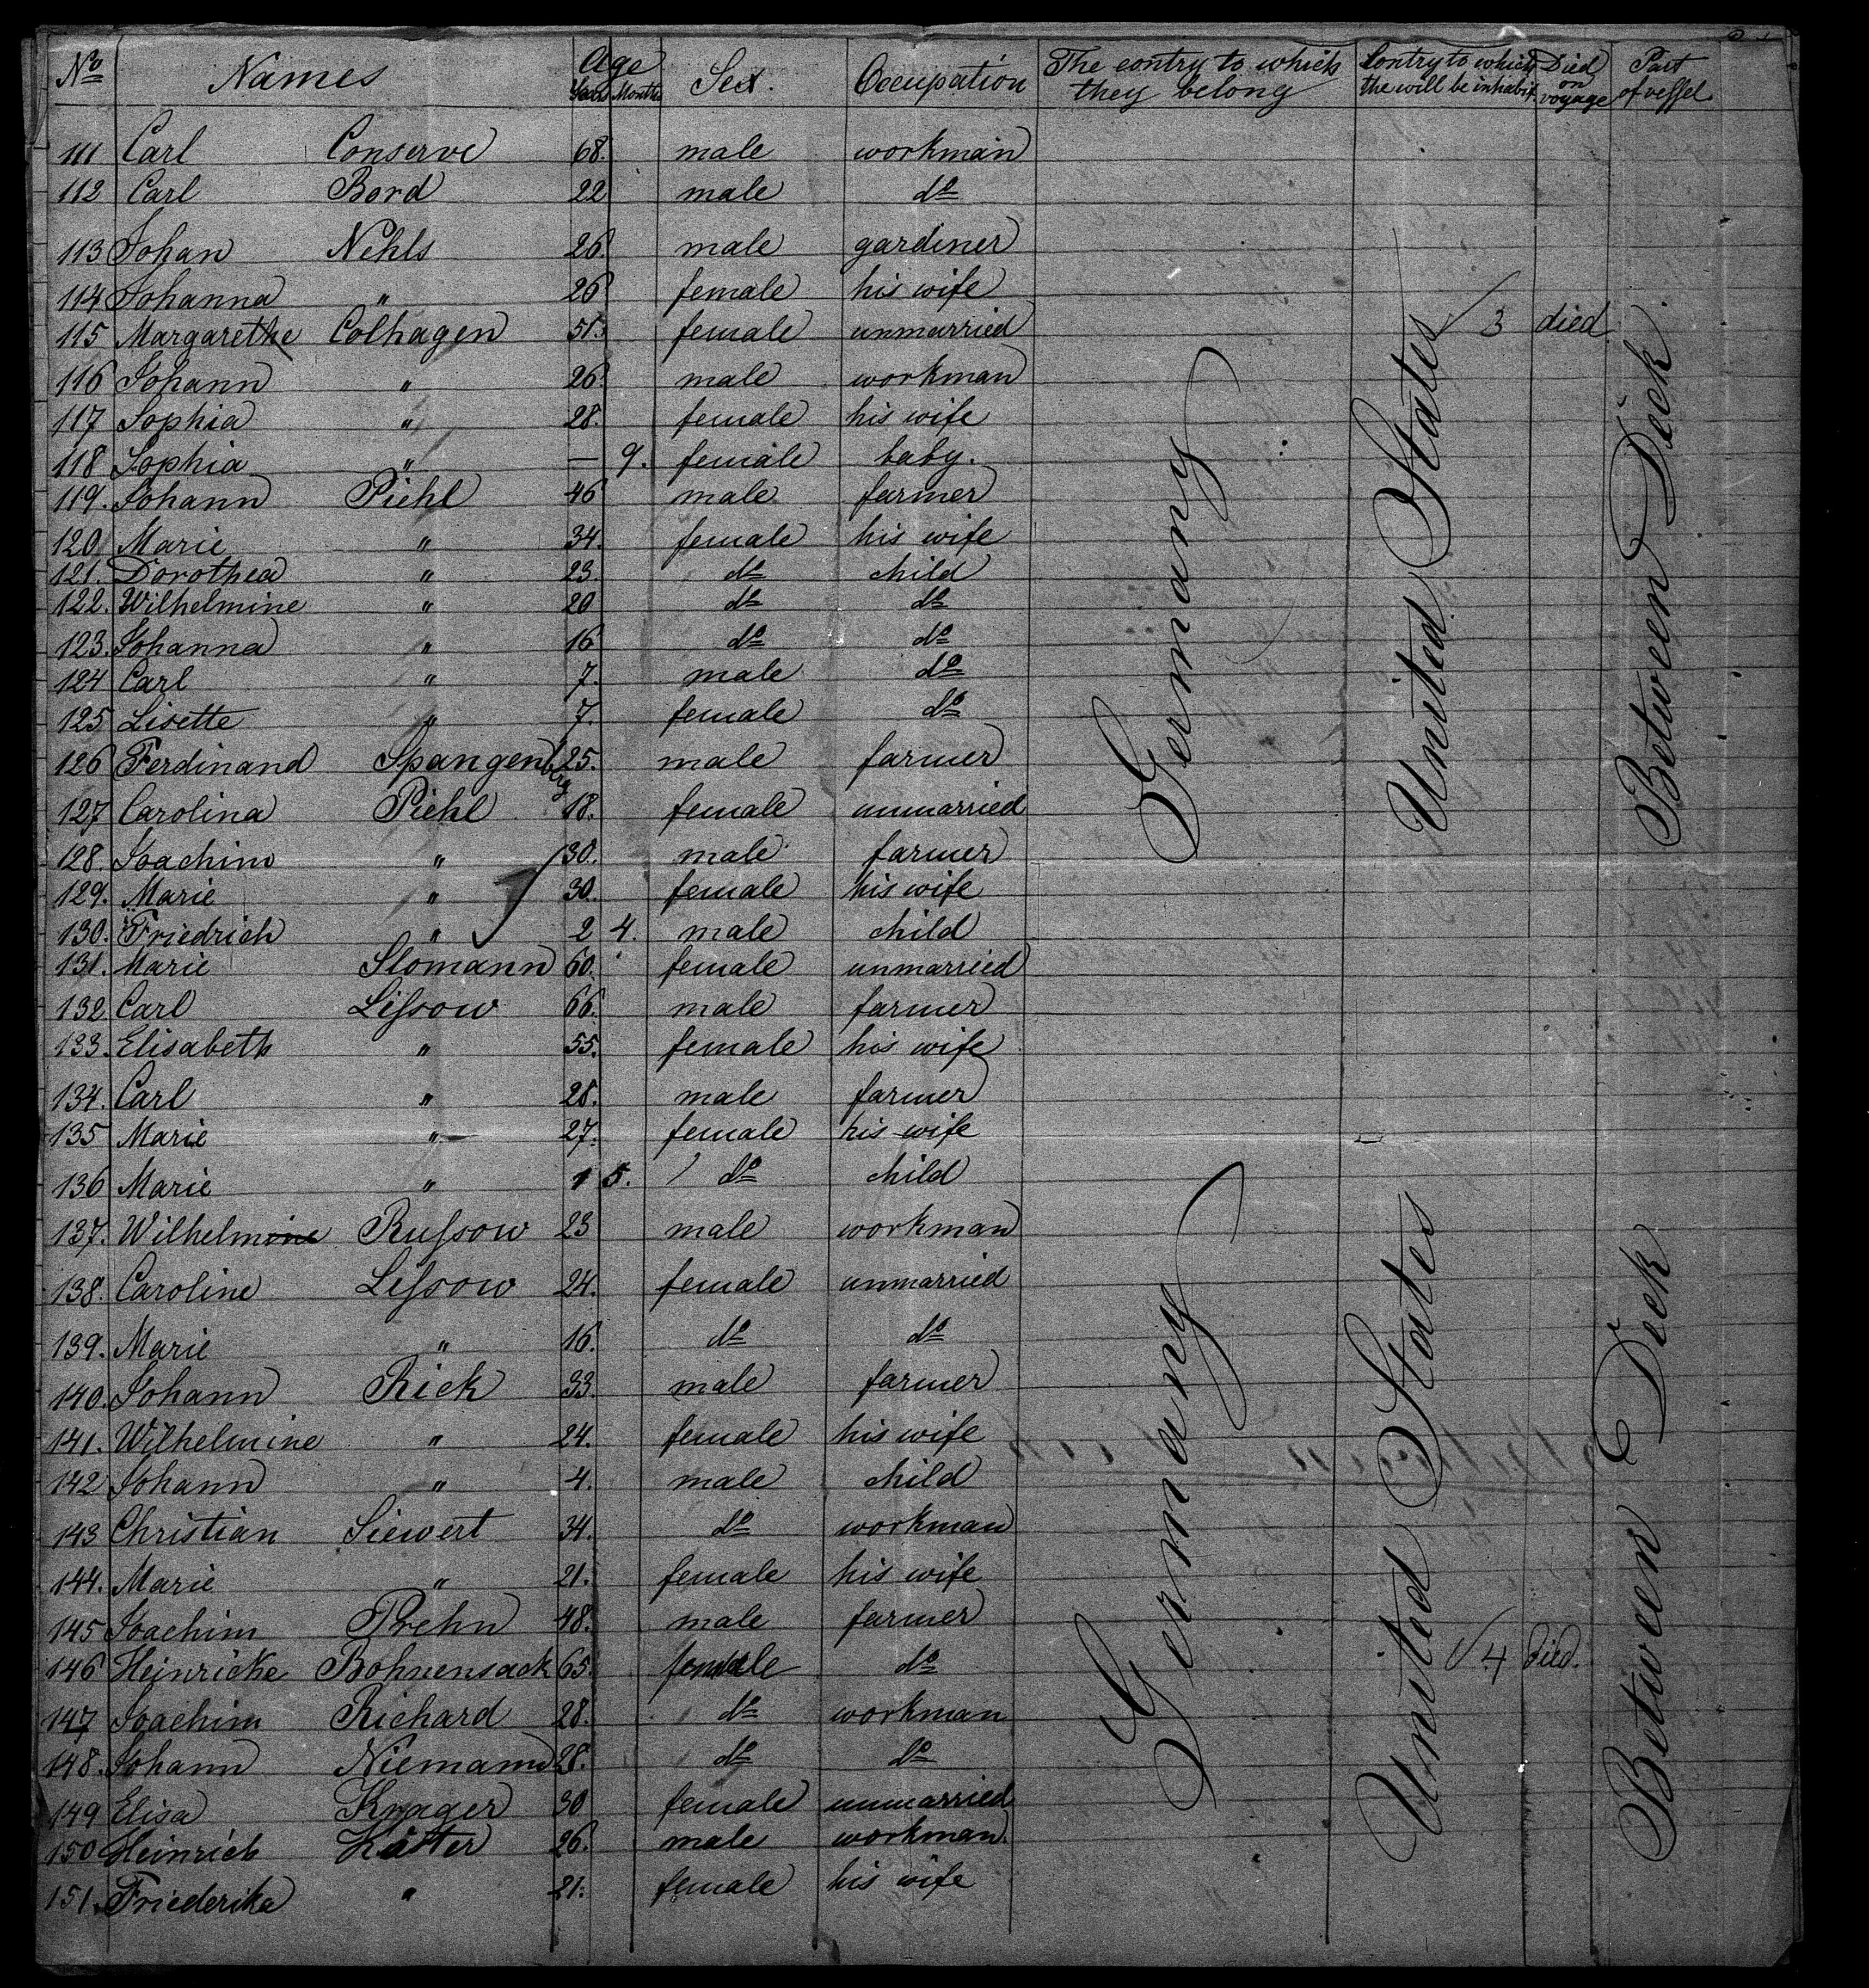 No Names Age Years Months Sex. Occupation The contry to which they belong Contry to which the will be inhabit. Died on voyage Part of vessel.
111 Carl Conserve 68. male workman
112 Carl Bord 22 male do
113 Johan Nehls 26. male gardiner
114 Johanna " 26 female his wife
115 Margarethe Colhagen 51. female unmarried √ 3 died
116 Johann " 26. male workman
117 Sophia " 28. female his wife
118 Sophia " — 9. female baby.
119. Johann Piehl 46 male farmer
120 Marie " 34. female his wife
121. Dorothea " 23. do child
122. Wilhelmine " 20 do do
123. Johanna " 16 do do
124 Carl " 7. male do
125 Lisette " 7. female do
126 Ferdinand Spangenberg 25. male farmer
127 Carolina Piehl 18. female unmarried
128. Joachim " 30. male farmer
129. Marie " 30. female his wife
130. Friedrich " 2 4. male child
131. Marie Slomann 60. female unmarried
132 Carl Lissow 66. male farmer
133. Elisabeth " 55. female his wife
134. Carl " 28. male farmer
135 Marie " 27. female his wife
136 Marie " 1 5. do child
137. Wilhelmine Russow 23 male workman
138. Caroline Lissow 24. female unmarried
139. Marie " 16. do do
140. Johann Rick 33. male farmer
141. Wilhelmine " 24. female his wife
142 Johann " 4. male child
143 Christian Siewert 34. do workman
144. Marie " 21. female his wife
145 Joachim Prehn 48. male farmer
146 Heinricke Bohnensack 65. female do √ 4 Died.
147 Joachim Richard 28. do workman
148. Johann Niemann 28. do do
149 Elisa Kruger 30 female unmarried
150 Heinrich Kätter 26. male workman.
151. Friederika " 21. female his wife
Germany
United States
Between Deck
Germany
United States
Between Deck